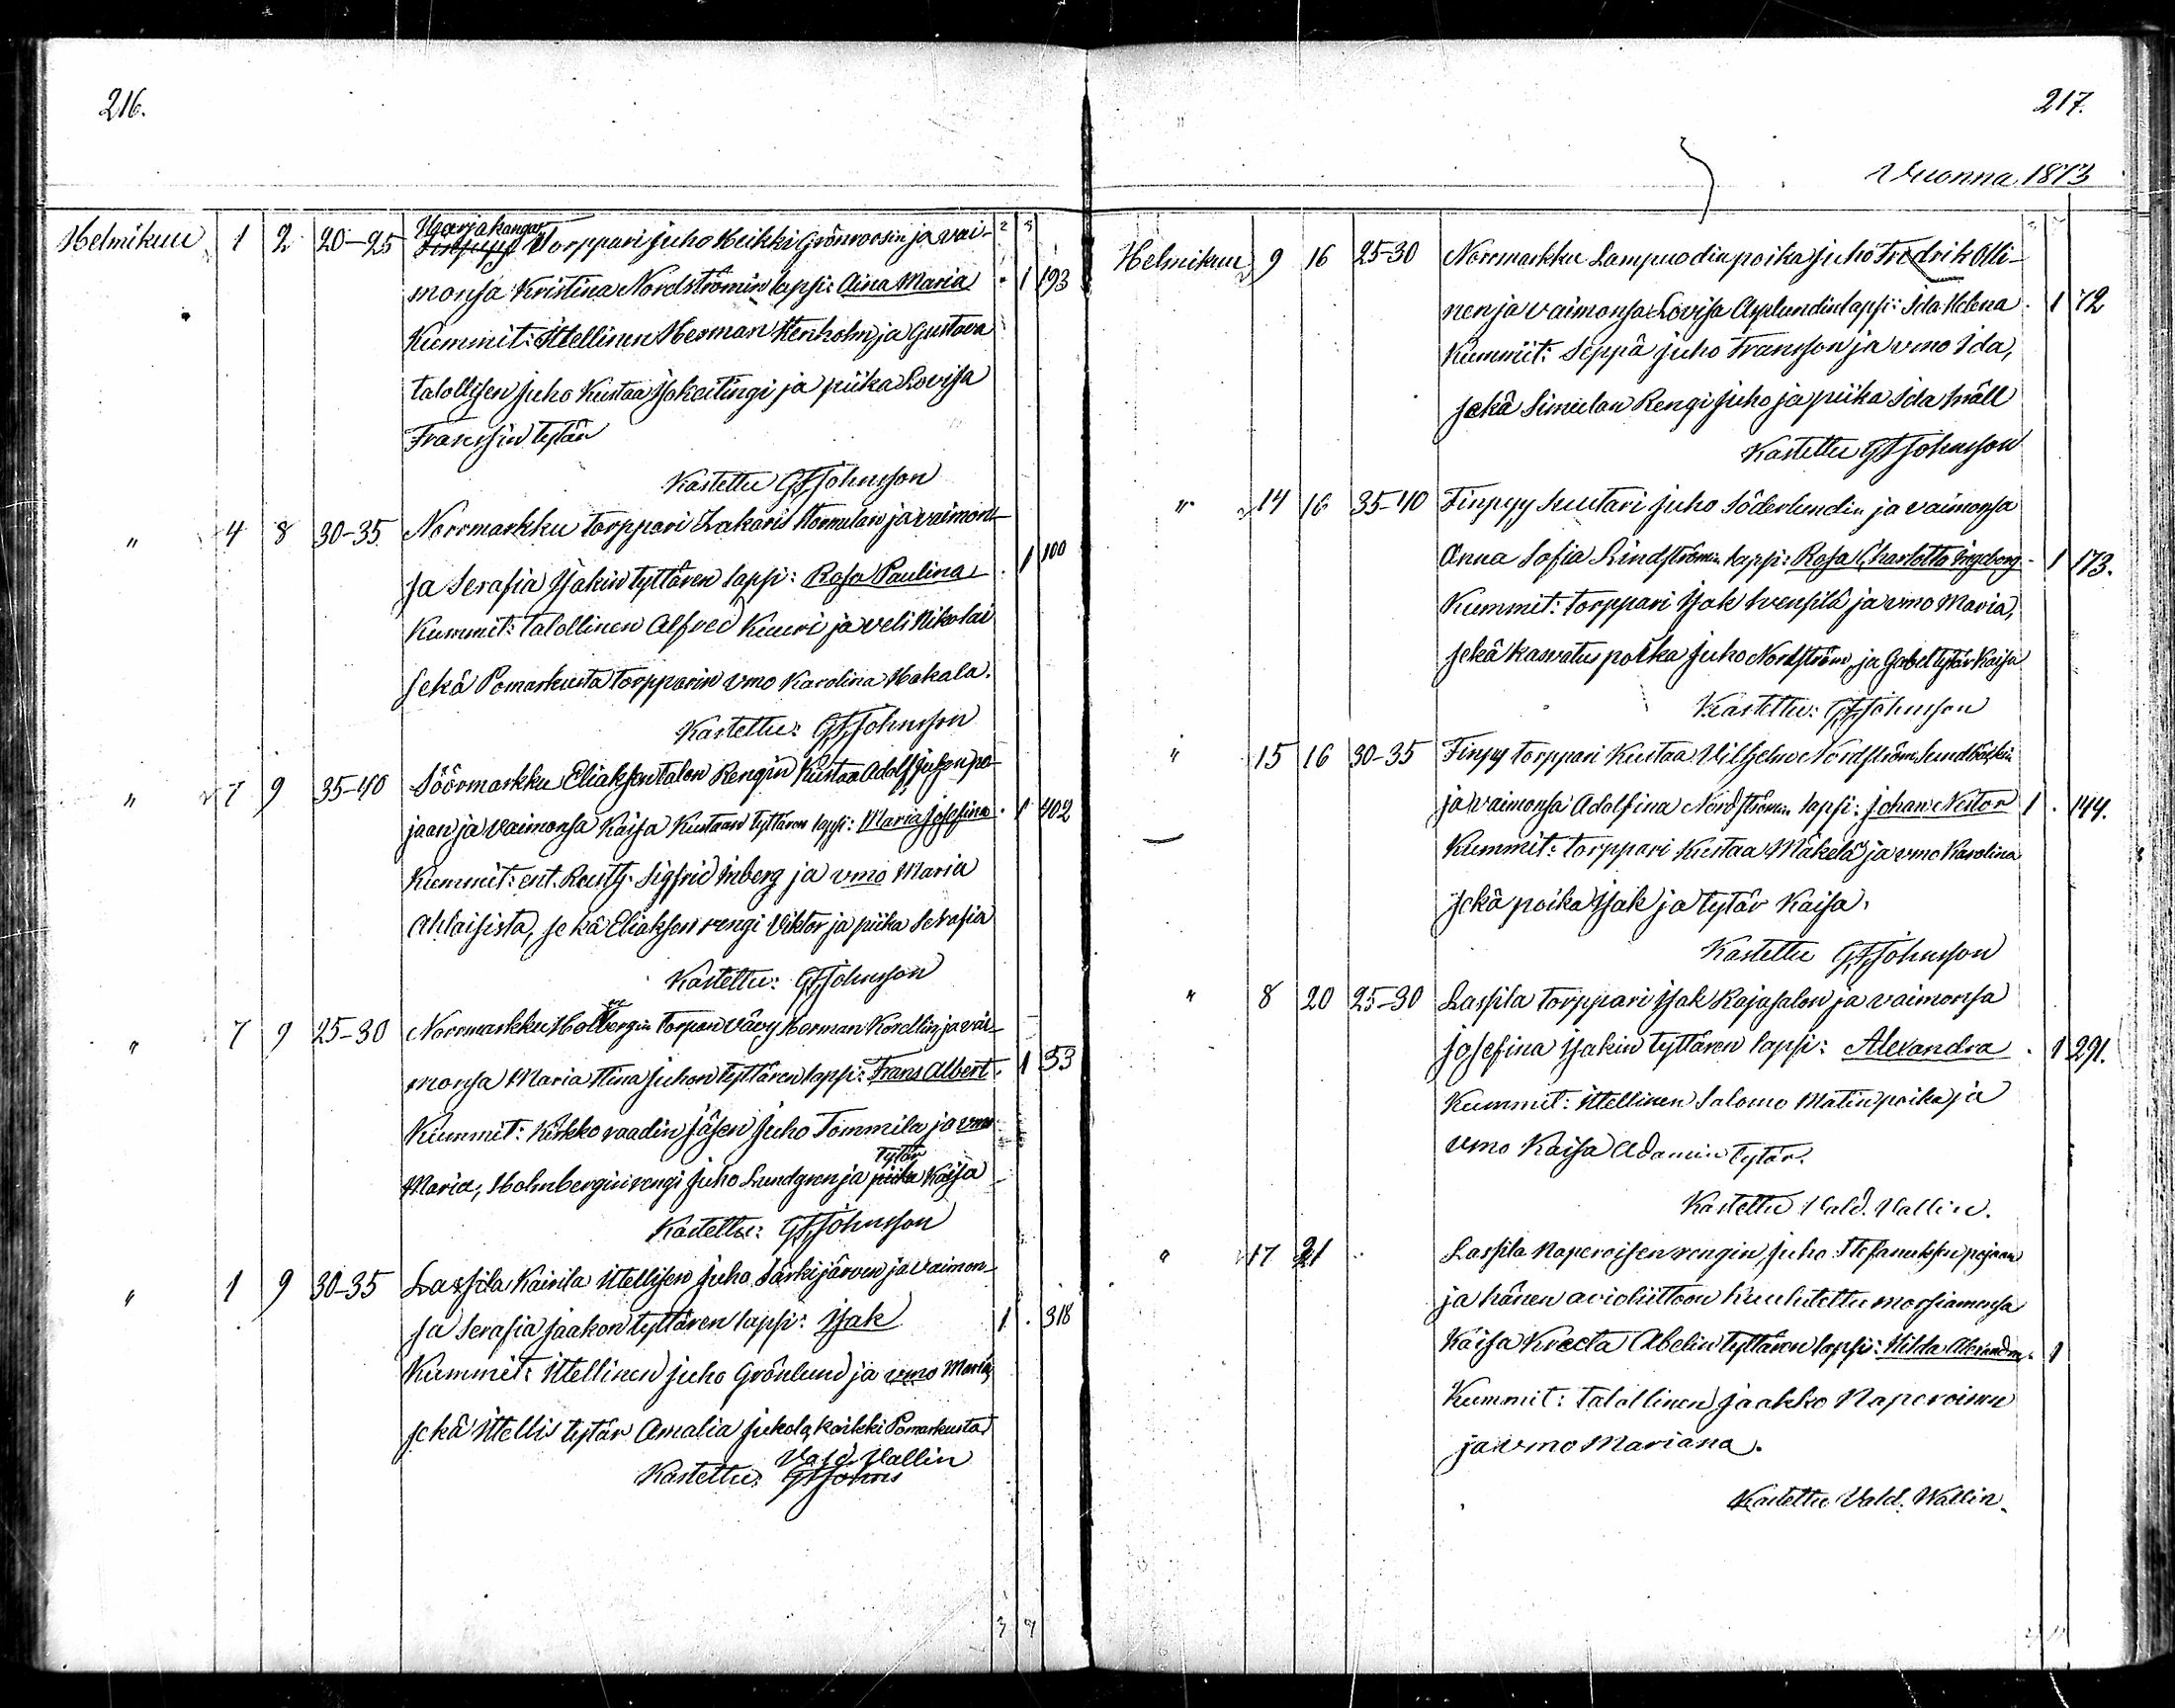 216.
Helmikuu 1 2 20-25 Harjakangas Torppari Juho Heikki Grönroosin ja vai- 2 5
monsa Kristina Nordströmin lapsi: Aina Maria . 1 193
Kummit: Itellinen Herman Stenholm ja Gustava
talollisen Juho Kustaa Isokeitingi ja piika Lovisa
Franssin tytär
Kastettu GFJohnsson
" 4 8 30-35 Norrmarkku torppari Zakaris Stormilan ja vaimon-
sa Serafia Isakin tyttären lapsi: Rosa Paulina . 1 100
Kummit: talollinen Alfred Kuuri ja veli Nikolai
sekä Pomarkusta torpparin vmo Karolina Hakala.
Kastettu: GFJohnsson
" 7 9 35-40 Söörmarkku Eliaksen talon Rengin Kustaa Adolf Juhon po-
jaan ja vaimonsa Kaisa Kustaan tyttären lapsi: Maria Josefina . 1 402
Kummit: ent. Rustg. Sigfrid Inberg ja vmo Maria
Ahlaisista, sekä Eliaksen rengi Viktor ja piika Serafia
Kastettu: GFJohnsson
" 7 9 25-30 Norrmarkku Holmbergin torpan vävy Herman Nordling ja vai-
monsa Maria Stina Juhon tyttären lapsi: Frans Albert . 1 53
Kummit: Kirkko raadin jäsen Juho Tommila ja vmo
Maria, Holmbergin rengi Juho Lundgren ja piika tytär Kaisa
Kastettu: GFJohnsson
" 1 9 30-35 Lassila Kairila Itellisen Juho Särkijärven ja vaimon-
sa Serafia Jaakon tyttären lapsi: Isak 1 . 318
Kummit: Itellinen Juho Grönlund ja vmo Maria,
sekä Itellis tytär Amalia Jukola, kaikki Pomarkusta
Kastettu: Vald. Vallin
3 7
217.
Vuonna 1873
Helmikuu 9 16 25-30 Norrmarkku Lampuodin poika Juho Fredrik Alli-
nen ja vaimonsa Lovisa Asplundin lapsi: Ida Helena . 1 72
Kummit: Seppä Juho Fransson ja vmo Ida,
sekä Simulan Rengi Juho ja piika Ida Mäll
Kastettu GFJohnsson
" 14 16 35-40 Finpyy Suutari Juho Söderlundin ja vaimonsa
Anna Sofia Lindströmin lapsi: Rosa Charlotta Ingeborg . 1 173.
Kummit: torppari Isak Svensilä ja vmo Maria,
sekä kasvatus poika Juho Nordström, ja tytär Kaisa
Kastettu: GFJohnsson
" 15 16 30-35 Finpy torppari Kustaa Vilhelm Nordström
ja vaimonsa Adolfina Nordströmin lapsi: Johan Nestor 1 . 144.
Kummit: torppari Kustaa Mäkelä ja vmo Karolina
sekä poika Isak ja tytär Kaisa.
Kastettu GFJohnsson
" 8 20 25-30 Lassila torppari Isak Rajasalon ja vaimonsa
Josefina Isakin tyttären lapsi: Alexandra . 1 291.
Kummit: Itellinen Salomo Matin poika ja
vmo Kaisa Adamin tytär.
Kastettu Vald. Vallin.
" 17 21 Lassila Naperoisen rengin, Juho Stefanuksen pojan
ja hänen avioliittoon kuulutettu morsiamensa
Kaisa Kreeta Abelin tyttären lapsi: Hilda Alexandra . 1
Kummit: talollinen Jaakko Naperoinen
ja vmo Mariana.
Kastettu Vald. Wallin.